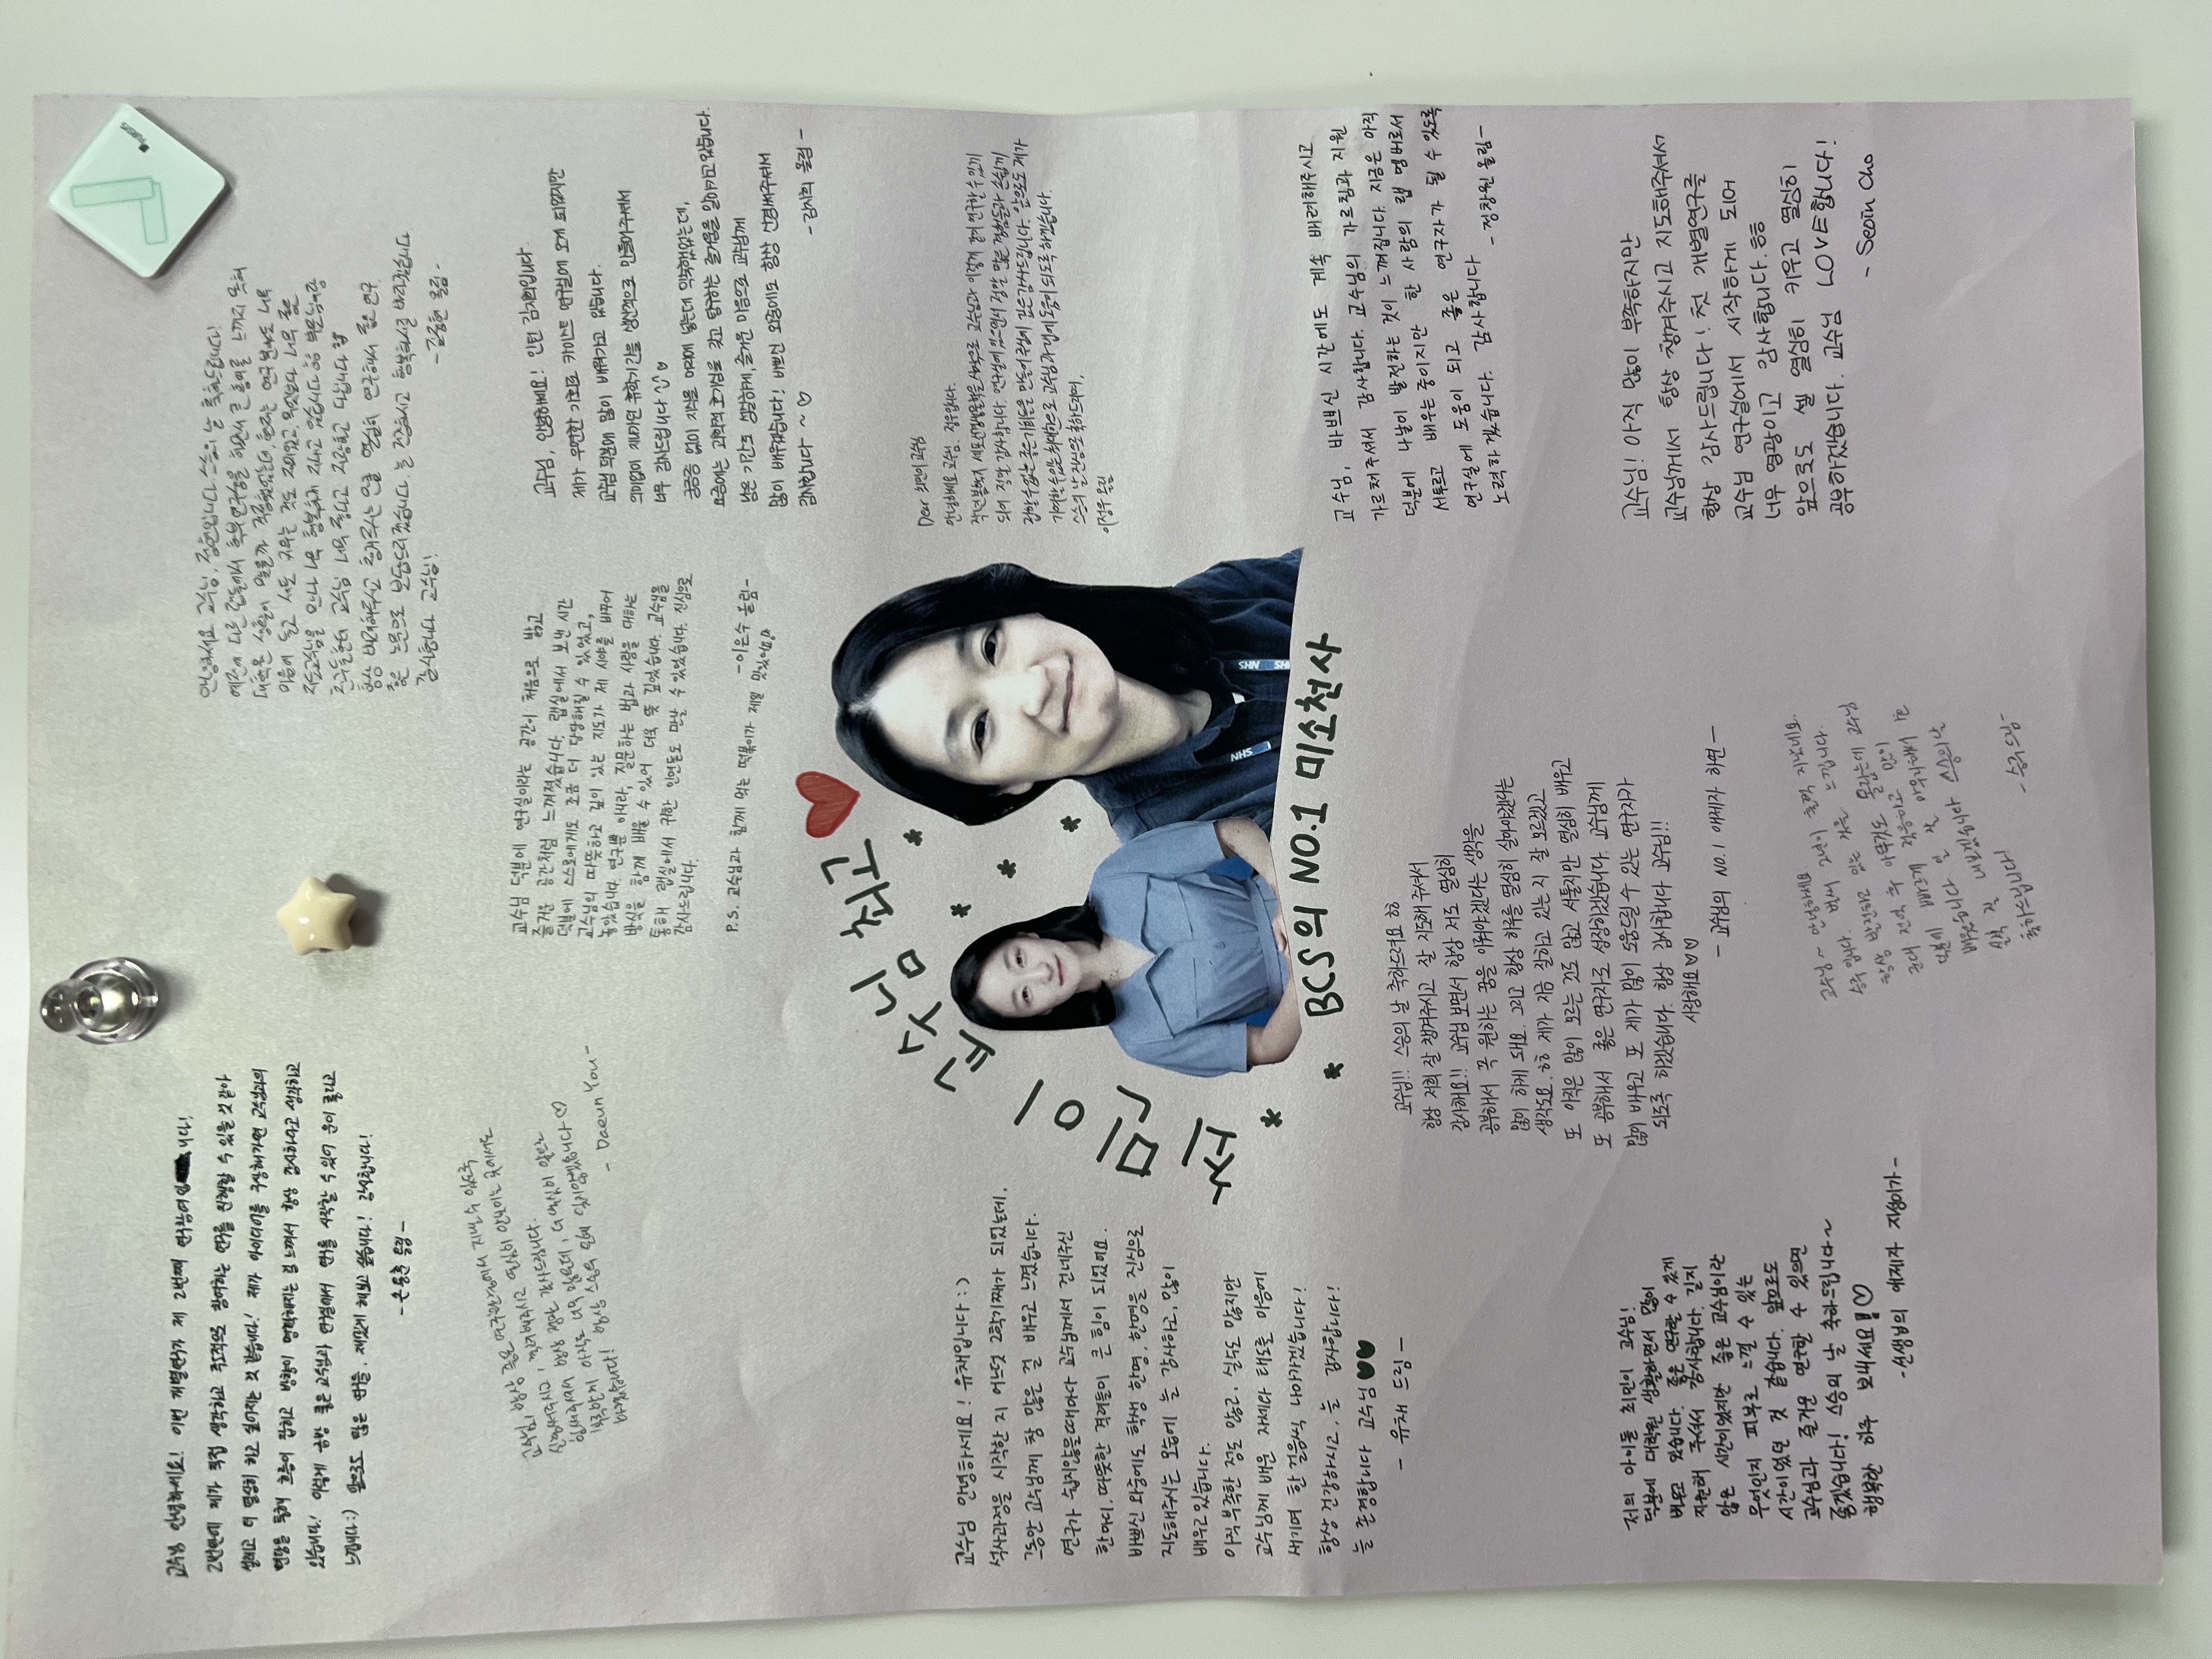 FURSYS
교수님 안녕하세요! 이번 개별연구가 제 2번째 연구참여입니다!
2번만에 제가 직접 생각하고 주도적으로 참여하는 연구를 진행할 수 있을 것 같아
설레고 더 열심히 하고 싶어지는 것 같습니다! 제가 아이디어를 구상해가면 교수님과의
면담을 통해 흐름이 잡히고 방향이 명확해지는 걸 느껴서 항상 감사하다고 생각하고
있습니다! 이렇게 금방 좋은 교수님과 연구실에서 연구를 시작할 수 있어 운이 좋다고
느낍니다:) 앞으로도 많은 연구를, 재밌게 해보고 싶습니다! 감사합니다!
-손동훈 올림-
안녕하세요 교수님, 정현입니다 스승의 날 축하드립니다!
예전에 다른 랩들에서 학부연구생을 하면서 큰 흥미를 느끼지 못해
대학원 생활이 맞을까 걱정했었는데, 현재는 연구분야도 너무
마음에 들고 세포 키우는 것도 재미있고, 무엇보다 너무 좋은
지도교수님을 만나 너무 행복하게 지내고 있습니다 ㅎㅎ 부모님이랑
친구들한테 교수님 너무 좋다고 자랑하고 다닙니다
항상 배려해주시고 챙겨주시는 만큼 열심히 연구해서 좋은 연구,
좋은 논문으로 보답드리겠습니다. 늘 건강하시고 행복하시길 바라겠습니다
감사합니다 교수님!
-김정현 올림-
교수님, 항상 좋은 연구환경에서 지낼 수 있도록
신경써주시고, 격려해주시고 열심히 안보이는 곳에서도
힘써주셔서 항상 정말 감사드립니다.
부족한게 아직도 너무 많은데, 더 열심히 앞으로
하겠습니다! 항상 스승의 은혜 잊지않겠습니다♡
- Daeun You -
교수님 덕분에 연구실이라는 공간이 처음으로 밝고
즐거운 공간처럼 느껴졌습니다. 랩실에서 보낸 시간
덕분에 스스로에게도 조금 더 당당해질 수 있었고,
교수님의 따뜻하고 깊이 있는 지도가 제 시야를 바꾸어
놓았습니다. 연구뿐 아니라, 질문하는 법과 사람을 대하는
방식을 함께 배울 수 있어 더욱 뜻 깊었습니다. 교수님을
통해 랩실에서 귀한 인연들도 만날 수 있었습니다. 진심으로
감사드립니다.
-이은수 올림-
P.S. 교수님과 함께 먹는 떡볶이가 제일 맛있어요!
교수님, 안녕하세요! 인턴 김지희입니다.
제가 우연한 기회로 카이스트 연구실에 오게 되었지만
교수님 덕분에 많이 배워가고 있습니다.
의미없이 지나가던 휴학기간을 생산적으로 만들어주셔서
너무 감사드립니다 ^^♡
궁금증 없이 지식을 머리에 넣는데 익숙했었는데,
요즘에는 과학적 호기심을 갖고 탐구하는 즐거움을 알아가고 있습니다.
남은 기간도 성실하게, 즐거운 마음으로 교수님께
많이 배우겠습니다! 바쁘신 와중에도 항상 신경써주셔서
감사합니다 ~ ♡
-김지희 올림-
최민이 교수님 최고
BCS의 NO.1 미소천사
NHS
NHS
교수님 안녕하세요! 유채입니다 :)
석사과정을 시작한 지 어느덧 2학기째가 되었는데,
그동안 교수님께 참 많은 걸 배우고 느꼈습니다.
연구가 쉽지않을때마다 교수님께서 건네주신
한마디, 따뜻한 격려들이 큰 힘이 되었어요.
바쁘신 와중에도 학생 한명, 한명을 진심으로
지도해주시는 모습에 늘 감사하고, 많이
배우고 있습니다.
아직 부족한 점도 많고, 실수도 많지만
교수님께 배운 자세와 태도를 마음에
새기며 한 걸음씩 나아가겠습니다!
항상 건강하시고, 늘 감사합니다!
늘 존경합니다 교수님♥♥
- 유채 드림 -
Dear 최민이 교수님
안녕하세요 교수님, 정우입니다.
작년 봄학기 세포신경생물학을 시작으로 교수님과 이렇게 같이 연구할 수 있게
되어 정말 감사합니다. 연구실에 있으면서 정말 많은 경험들과 손쉽게
접할 수 없는 좋은 기회들을 만들어 주심에 깊은 감사드립니다. 앞으로도 제가
기여할 수 있는 최대한으로 교수님과 랩에 도움이 되도록 하겠습니다.
스승의 날 진심으로 축하드리며,
이정우 올림
교수님, 바쁘신 시간에도 계속 배려해주시고
가르쳐주셔서 감사합니다. 교수님의 가르침과 지원
덕분에 나날이 발전하는 것이 느껴집니다. 지금은 아직
서투르고 배우는 중이지만 한 사람의 랩 멤버로서
연구실에 도움이 되고 좋은 연구자가 될 수 있도록
노력하겠습니다. 감사합니다
-정창원 올림-
교수님!! 스승의 날 축하드려요 ㅎㅎ
항상 저희 잘 챙겨주시고 잘 지도해 주셔서
감사해요!! 교수님 보면서 항상 저도 열심히
공부해서 꼭 원하는 꿈을 이뤄야겠다는 생각을
많이 하게 돼요. 그리고 항상 하루를 열심히 살아야겠다는
생각도요.ㅎㅎ 제가 지금 잘하고 있는 지 잘 모르겠고
또 아직은 많이 모르는 것도 많고 서툴지만 열심히 배우고
또 공부해서 좋은 연구자로 성장하겠습니다. 교수님께
많이 배우고 또 제가 많이 도움드릴 수 있는 연구자가
되도록 하겠습니다. 항상 감사합니다 교수님!!
사랑해요♡♡
- 교수님의 NO.1 애제자 하연 -
저의 아이돌 최민이 교수님!
덕분에 대학원 생활하면서 많이
배우고 있습니다. 좋은 연구할 수 있게
지원해 주셔서 감사합니다. 길지
않은 시간이었지만 좋은 교수님이란
무엇인지 피부로 느낄 수 있는
시간이었던 것 같습니다. 앞으로도
교수님과 즐거운 연구할 수 있으면
좋겠습니다! 스승의 날 축하드립니다~
행복한 하루 보내세요!♡
-선생님의 애제자 지성이가-
교수님~ 안녕하세요
승주입니다. 벌써 2년이 훌쩍 지났네요.
항상 발전하고 있는 것을 느낍니다.
군대 전역 후 아무것도 몰랐는데 교수님
덕분에 빠르게 적응하고 많이
배웠습니다. 일 잘 마무리해서
실적 잘 내보겠습니다 스승의날
축하드립니다!
-승주드림-
교수님! 아직 많이 부족하지만
교수님께서 항상 챙겨주시고 지도해주셔서
항상 감사드립니다! 첫 개별연구를
교수님 연구실에서 시작하게 되어
너무 영광이고 감사합니다.ㅎㅎ
앞으로도 셀 열심히 키우고 열심히
공부하겠습니다. 교수님 LOVE합니다!
- Seoin Cho